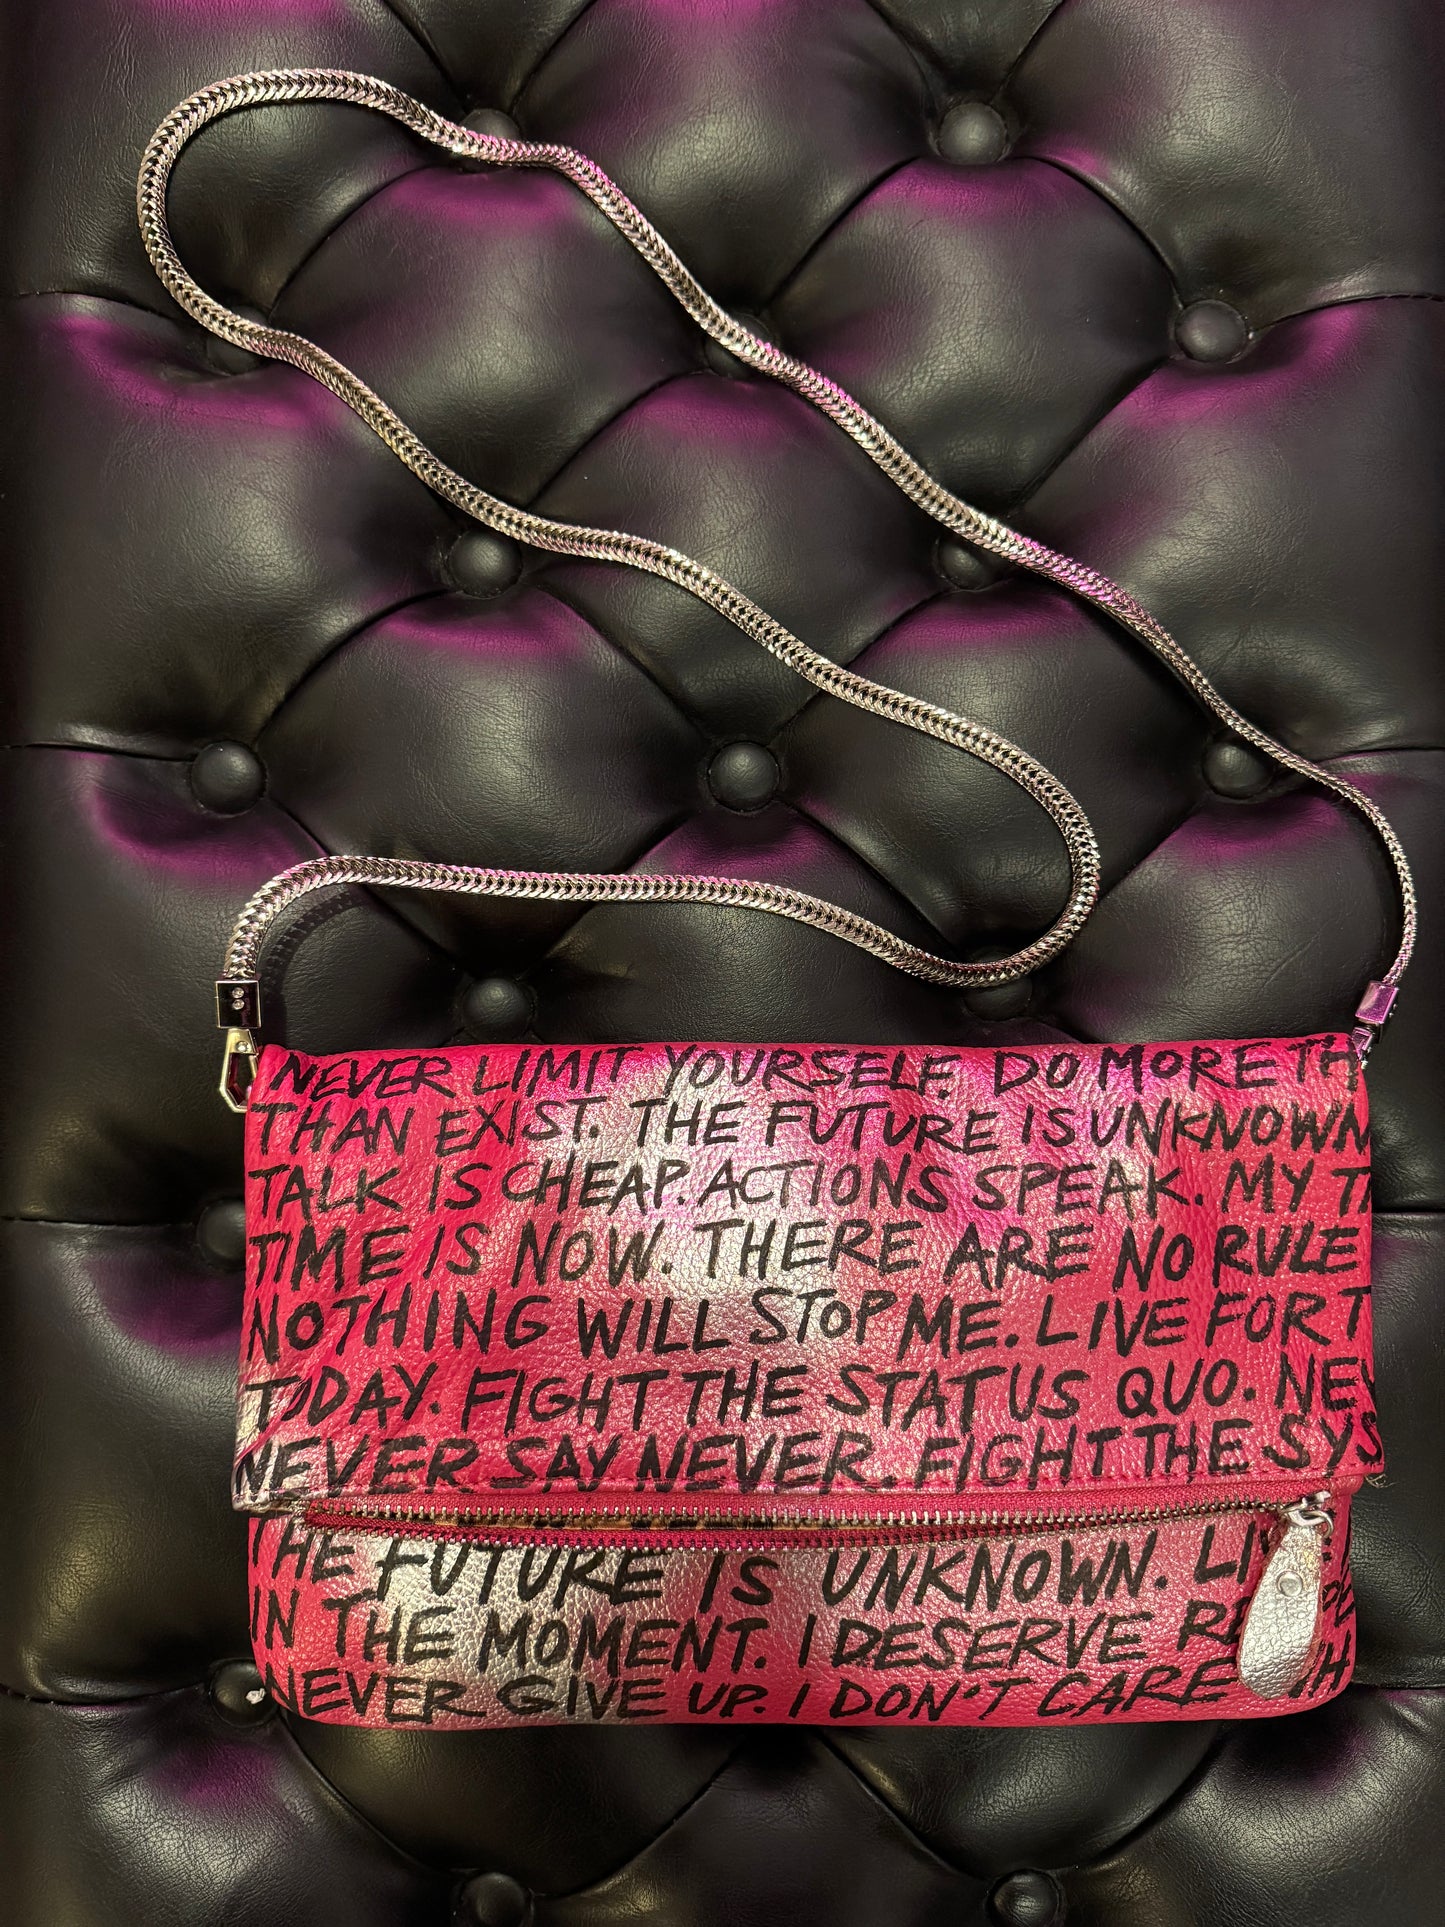 NEVER LIMIT YOURSELF. DO MORE TH
THAN EXIST. THE FUTURE IS UNKNOWN
TALK IS CHEAP. ACTIONS SPEAK. MY T
TIME IS NOW. THERE ARE NO RULE
NOTHING WILL STOP ME. LIVE FOR T
TODAY. FIGHT THE STATUS QUO. NEV
NEVER SAY NEVER. FIGHT THE SYS
THE FUTURE IS UNKNOWN. LI
IN THE MOMENT. I DESERVE
NEVER GIVE UP. I DON'T CARE